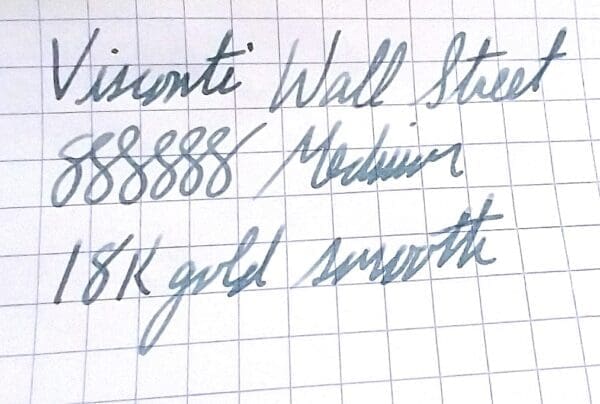 Visconti Wall Street
888888 Medium
18K gold smooth